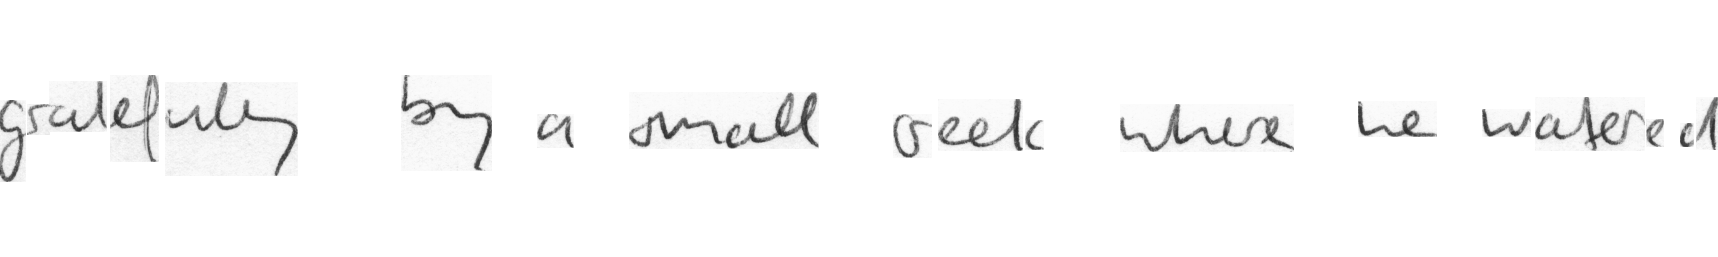 gratefully by a small creek where he watered